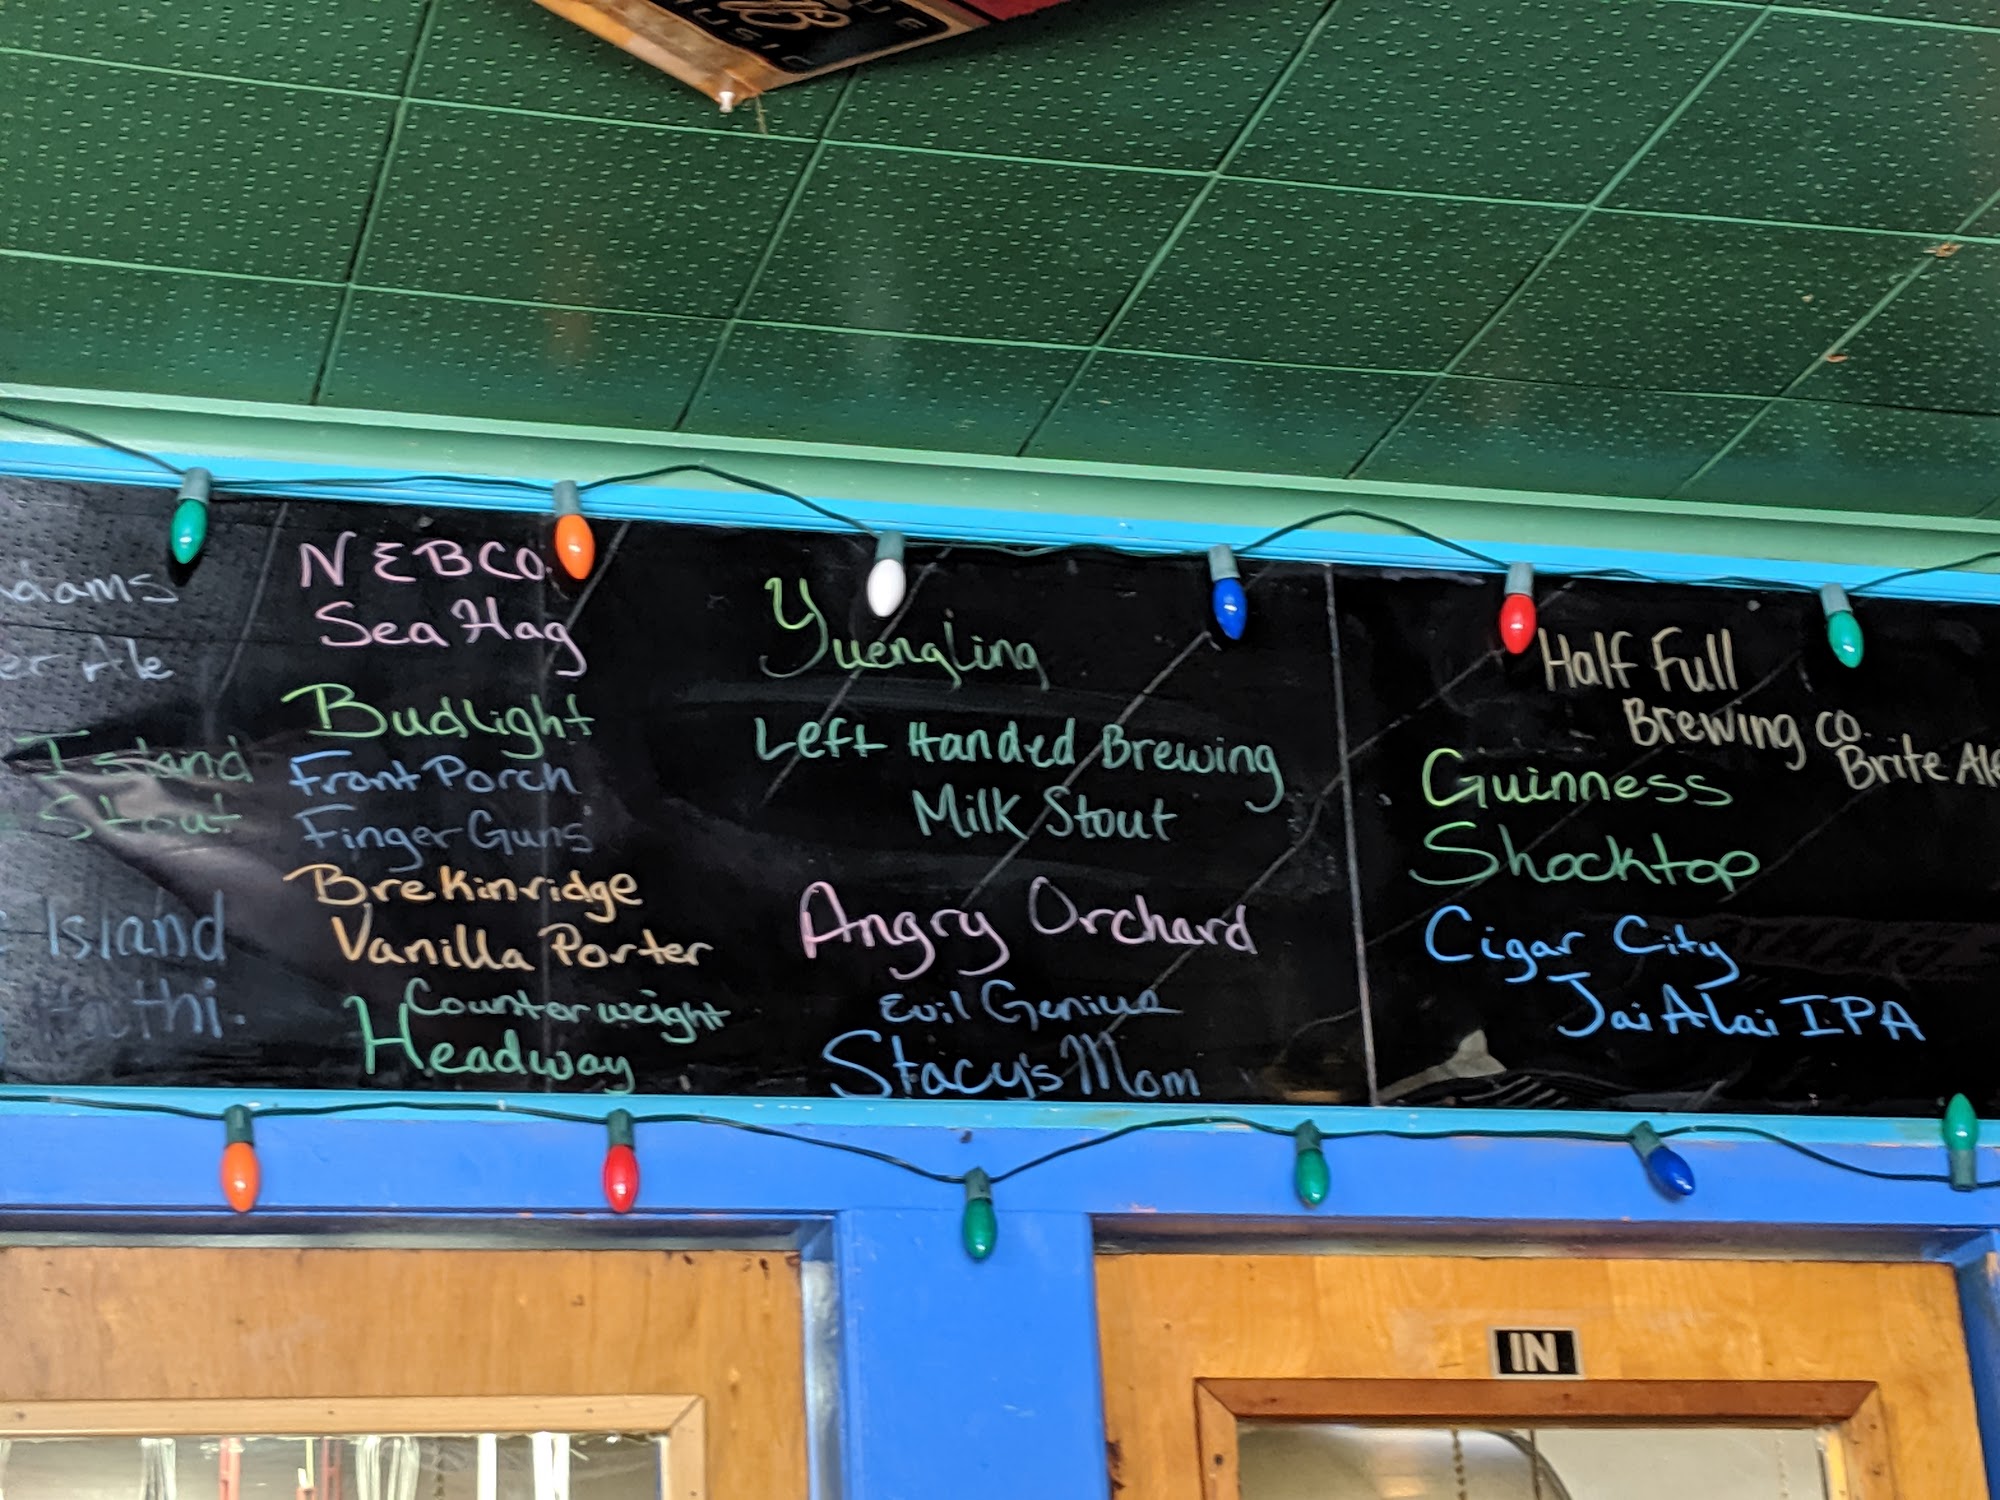 MUSIC
dams
er Ale
Island
Stout
Island
NEBCO.
Sea Hag
Budlight
Front Porch
Finger Guns
Brekinridge
Vanilla Porter
Counterweight
Headway
Yuengling
Left Handed Brewing
Milk Stout
Angry Orchard
Evil Genius
Stacy's Mom
Half Full
Brewing co.
Brite Ale
Guinness
Shocktop
Cigar City
Jai Alai IPA
IN